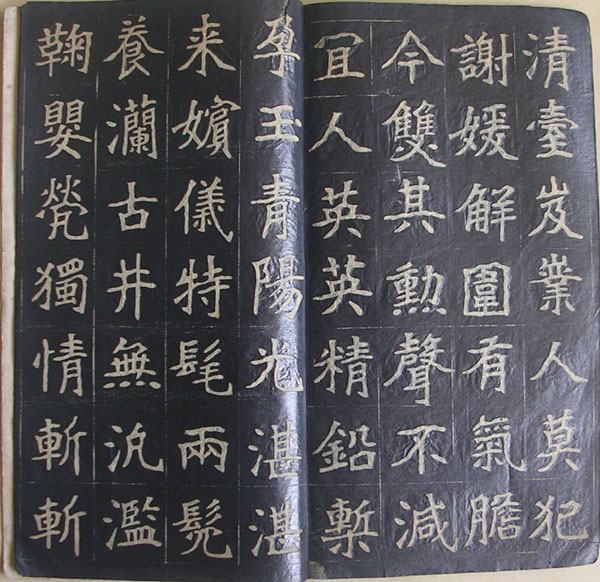 清臺岌業人莫犯
謝媛解圍有氣膽
今雙其勲聲不減
冝人英英精鉛槧
孕玉青陽光湛湛
来嬪儀特髦兩髧
養瀾古井無氿濫
鞠嬰煢獨情斬斬